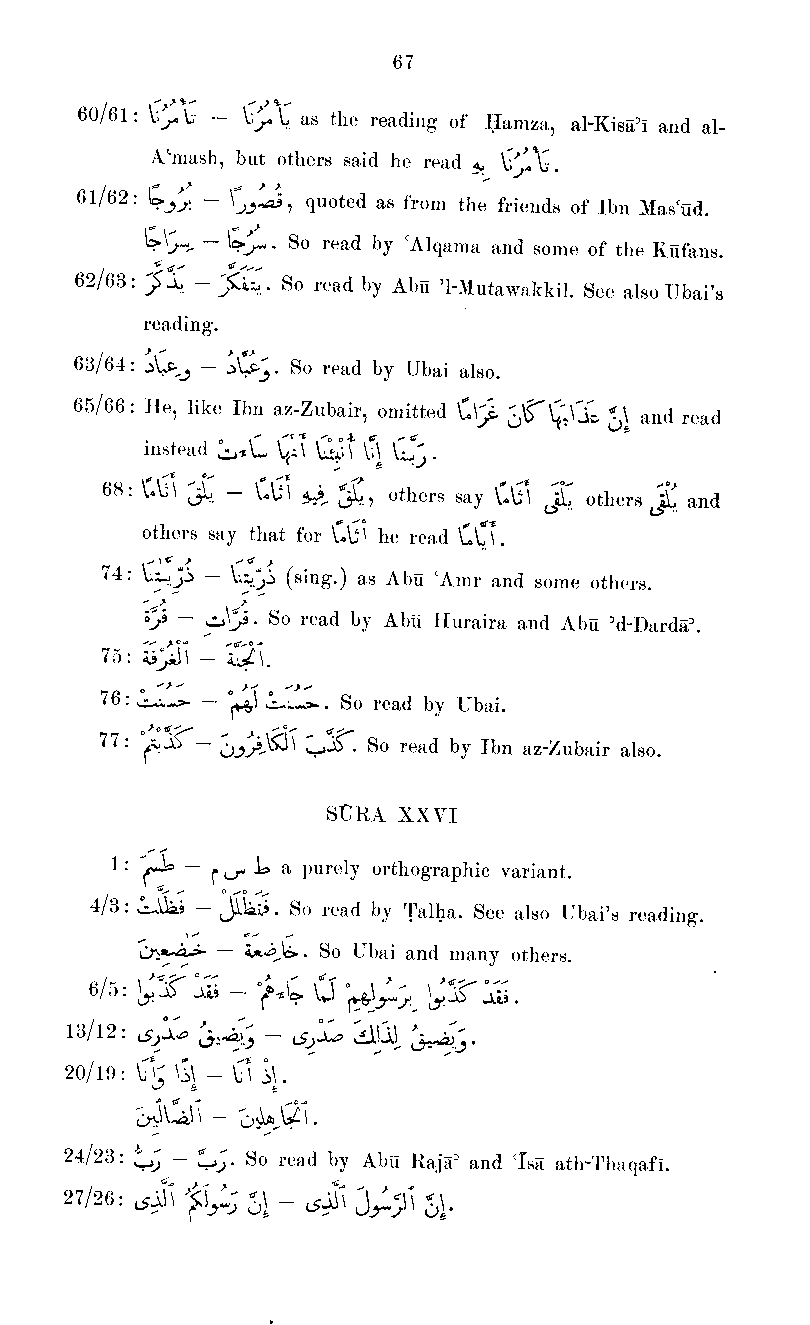 67
60/61: تَأْمُرُنَا — يَأْمُرُنَا as the reading of Ḥamza, al-Kisāʾī and al-
Aʿmash, but others said he read تَأْمُرُنَا بِهِ.
61/62: بُرُوجًا — قُصُورًا, quoted as from the friends of Ibn Masʿūd.
سِرَاجًا — سُرُجًا. So read by ʿAlqama and some of the Kūfans.
62/63: يَذَّكَّرَ — يَتَفَكَّرَ. So read by Abū ʾl-Mutawakkil. See also Ubai's
reading.
63/64: وَعِبَادُ — وَعُبَّادُ. So read by Ubai also.
65/66: He, like Ibn az-Zubair, omitted إِنَّ عَذَابَهَا كَانَ غَرَامًا and read
instead رَبَّنَا إِنَّا أُنْبِئْنَا أَنَّهَا سَاءَتْ.
68: يَلْقَ أَثَامًا — يُلَقَّ فِيهِ أَثَامًا, others say يَلْقَى أَثَامًا others يُلْقَى and
others say that for أَثَامًا he read أَيَّامًا.
74: ذُرِّيَّتِنَا — ذُرِّيَّٰتِنَا (sing.) as Abū ʿAmr and some others.
قُرَّةَ — قُرَّاتِ. So read by Abū Huraira and Abū ʾd-Dardāʾ.
75: ٱلْغُرْفَةَ — ٱلْجَنَّةَ.
76: حَسُنَتْ — حَسُنَتْ لَهُمْ. So read by Ubai.
77: كَذَّبْتُمْ — كَذَّبَ ٱلْكَافِرُونَ. So read by Ibn az-Zubair also.
SŪRA XXVI
1: طسم — ط س م a purely orthographic variant.
4/3: فَظَلَّتْ — فَتَظْلَلْ. So read by Ṭalḥa. See also Ubai's reading.
خَٰضِعِينَ — خَاضِعَةً. So Ubai and many others.
6/5: فَقَدْ كَذَّبُوا — فَقَدْ كَذَّبُوا بِرَسُولِهِمْ لَمَّا جَاءَهُمْ.
13/12: وَيَضِيقُ صَدْرِى — وَيَضِيقُ لِذَالِكَ صَدْرِى.
20/19: إِذًا وَأَنَا — إِذْ أَنَا.
ٱلضَّالِّينَ — ٱلْجَاهِلِينَ.
24/23: رَبُّ — رَبَّ. So read by Abū Rajāʾ and ʿIsā ath-Thaqafī.
27/26: إِنَّ رَسُولَكُمُ ٱلَّذِى — إِنَّ ٱلرَّسُولَ ٱلَّذِى.